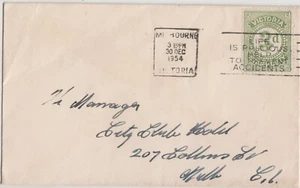 MELBOURNE
3 15PM
30 DEC
1954
VICTORIA
VICTORIA
LIFE
IS PRECIOUS
HELP
TO PREVENT
ACCIDENTS
The Manager
City Club Hotel
207 Collins St
Melb C.1.